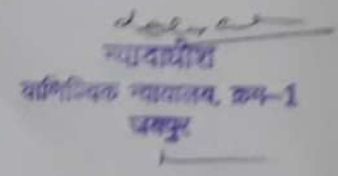 न्यायाधीश
वाणिज्यिक न्यायालय, क्रम-1
जयपुर